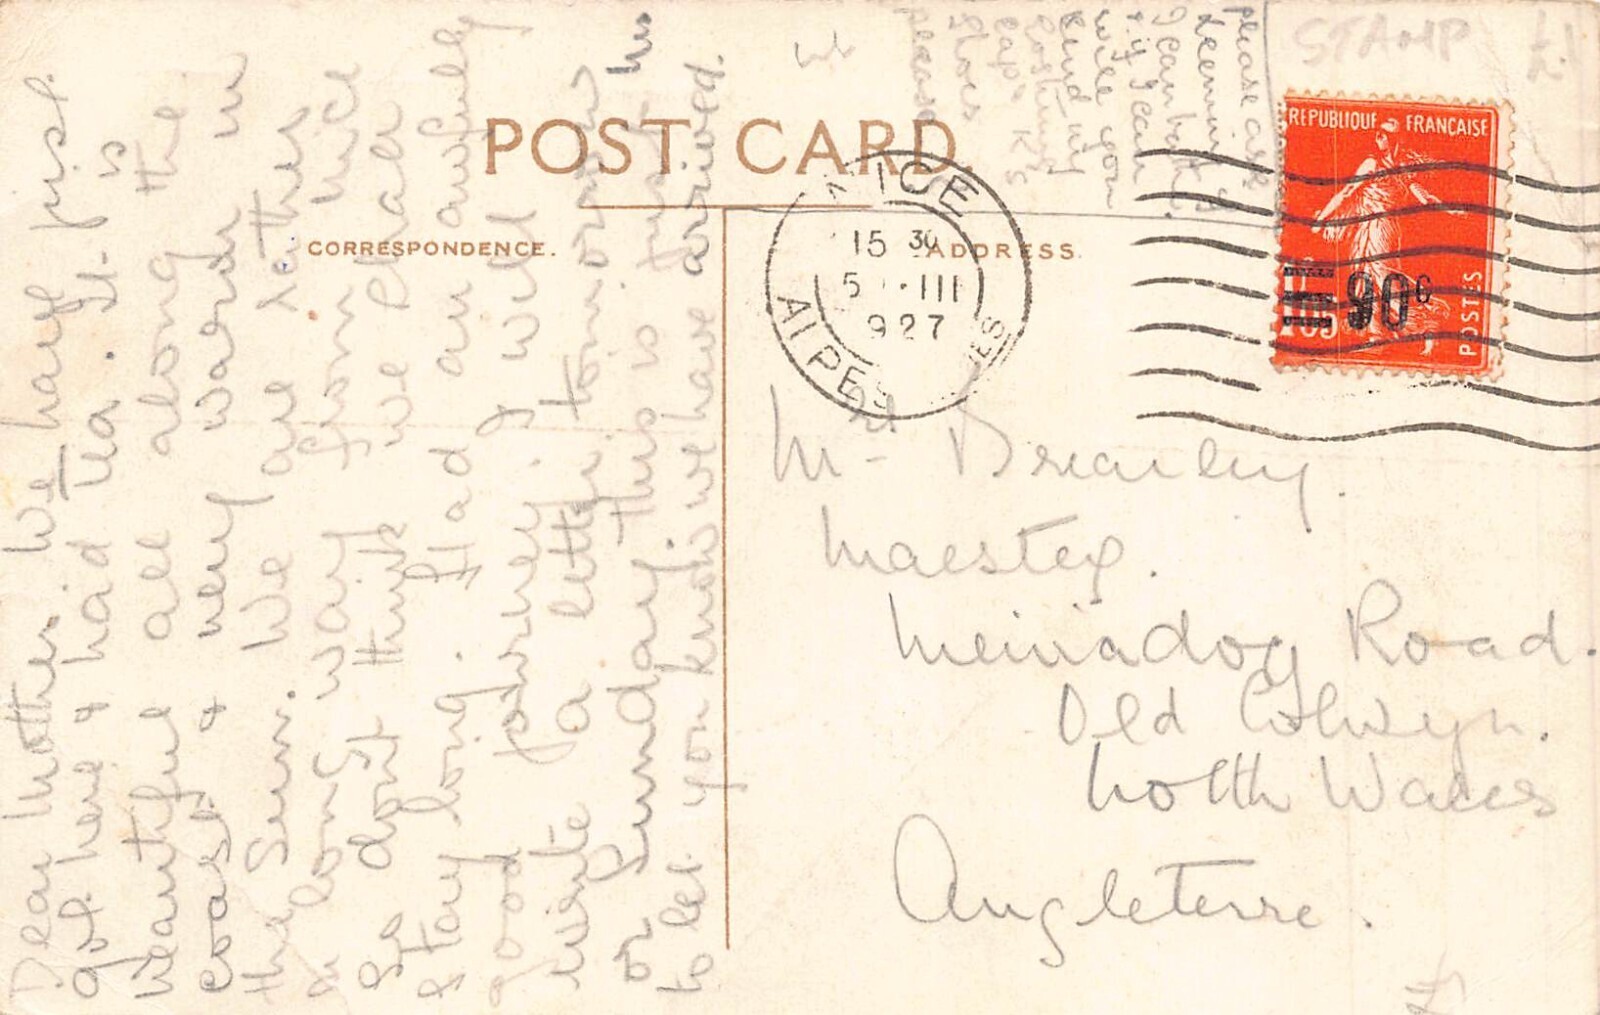 POST CARD
CORRESPONDENCE.
ADDRESS
STAMP
REPUBLIQUE FRANCAISE
POSTES
1F05
90c
NICE
15 30
5 · III
927
ALPES
ES
Dear Mother. We have just
got here & had Tea. It is
beautiful all along the
coast & very warm in
the Sun. We are rather
a long way from Nice
So dont think we shall
stay long. Had an awfully
good journey. I will
write a letter tomorrow
or Sunday. This is just
to let you know we have arrived.
please ask
I can
& if I can
will you
send my
cap
shoes
please
Mr Brearley.
Maesteg.
Meiriadog Road.
Old Colwyn.
North Wales
Angleterre.